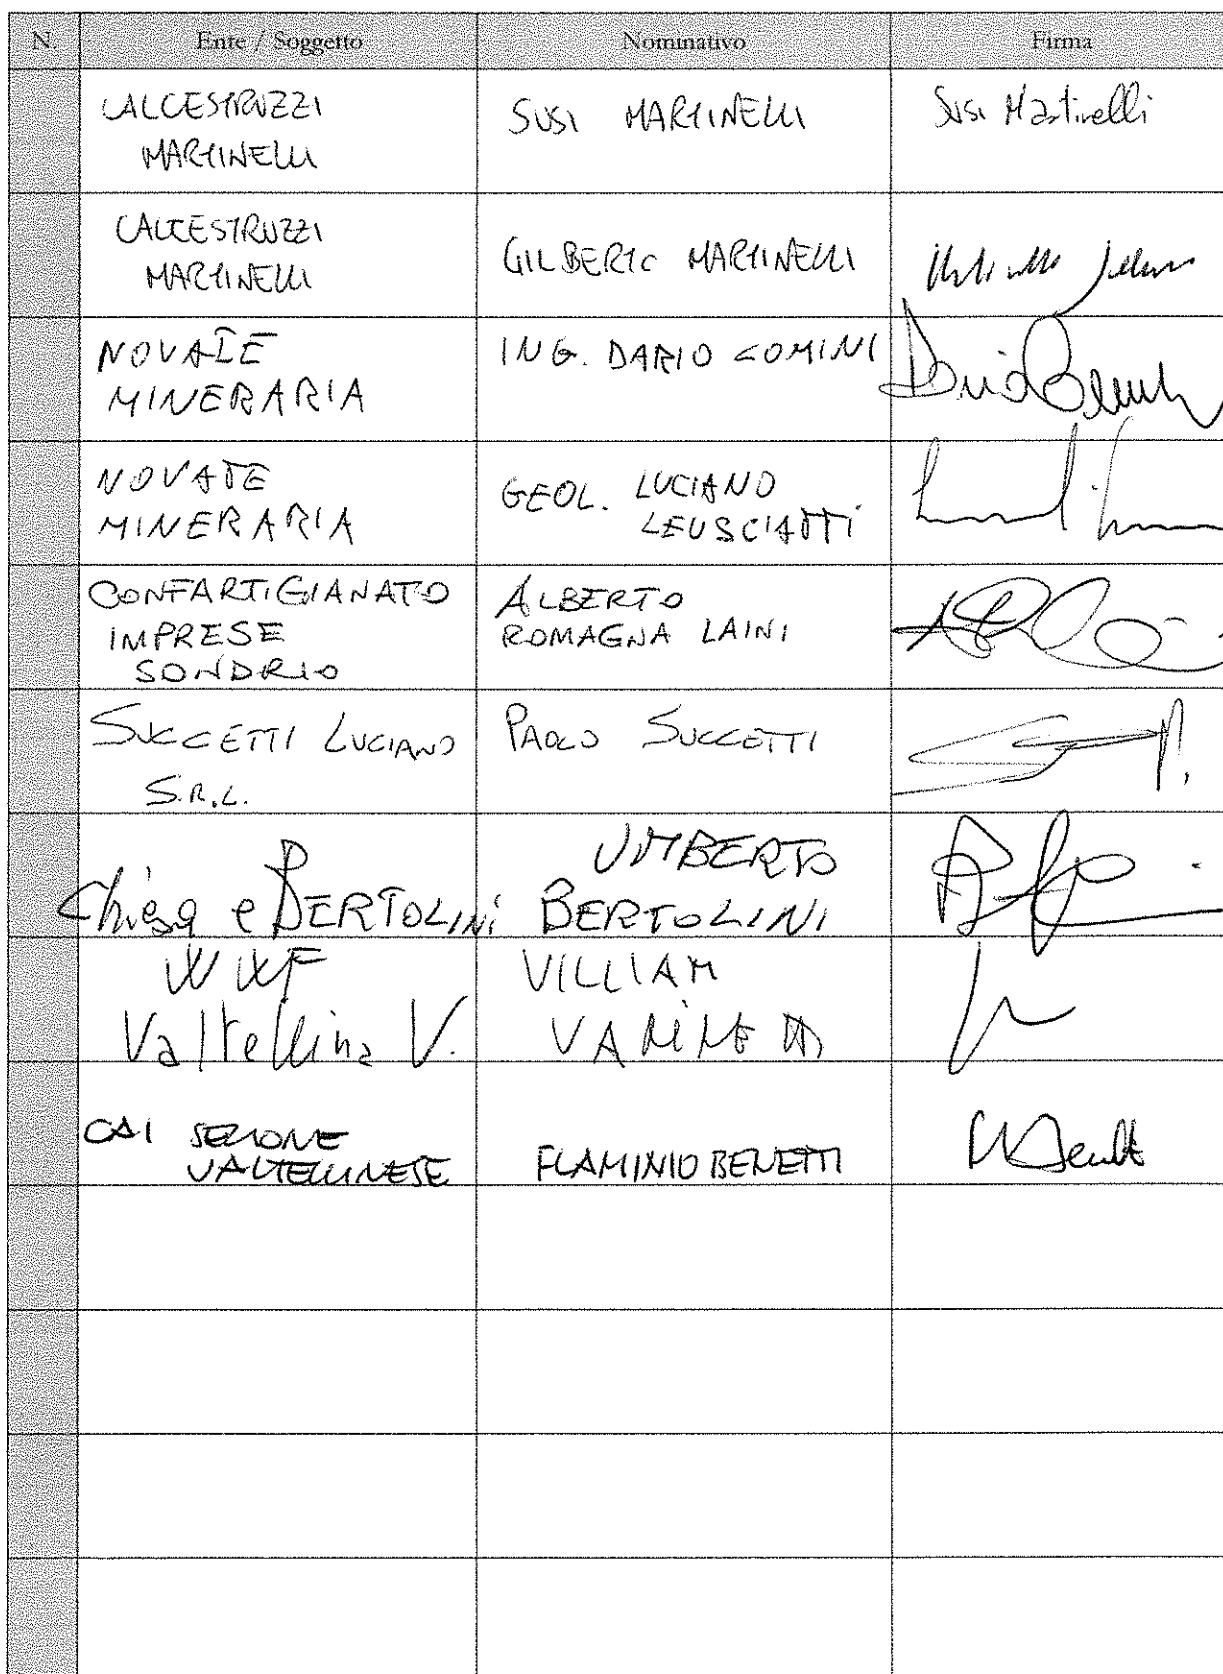 N. Ente / Soggetto Nominativo Firma
CALCESTRUZZI
MARTINELLI
SUSI MARTINELLI
Susi Martinelli
CALCESTRUZZI
MARTINELLI
GILBERTO MARTINELLI
NOVATE
MINERARIA
ING. DARIO COMINI
NOVATE
MINERARIA
GEOL. LUCIANO
LEUSCIATTI
CONFARTIGIANATO
IMPRESE
SONDRIO
ALBERTO
ROMAGNA LAINI
SUCCETTI LUCIANO
S.R.L.
PAOLO SUCCETTI
Chiesa e BERTOLINI
UMBERTO
BERTOLINI
WWF
Valtellina V.
VILLIAM
VANINETTI
CAI SEZIONE
VALTELLINESE
FLAMINIO BENETTI